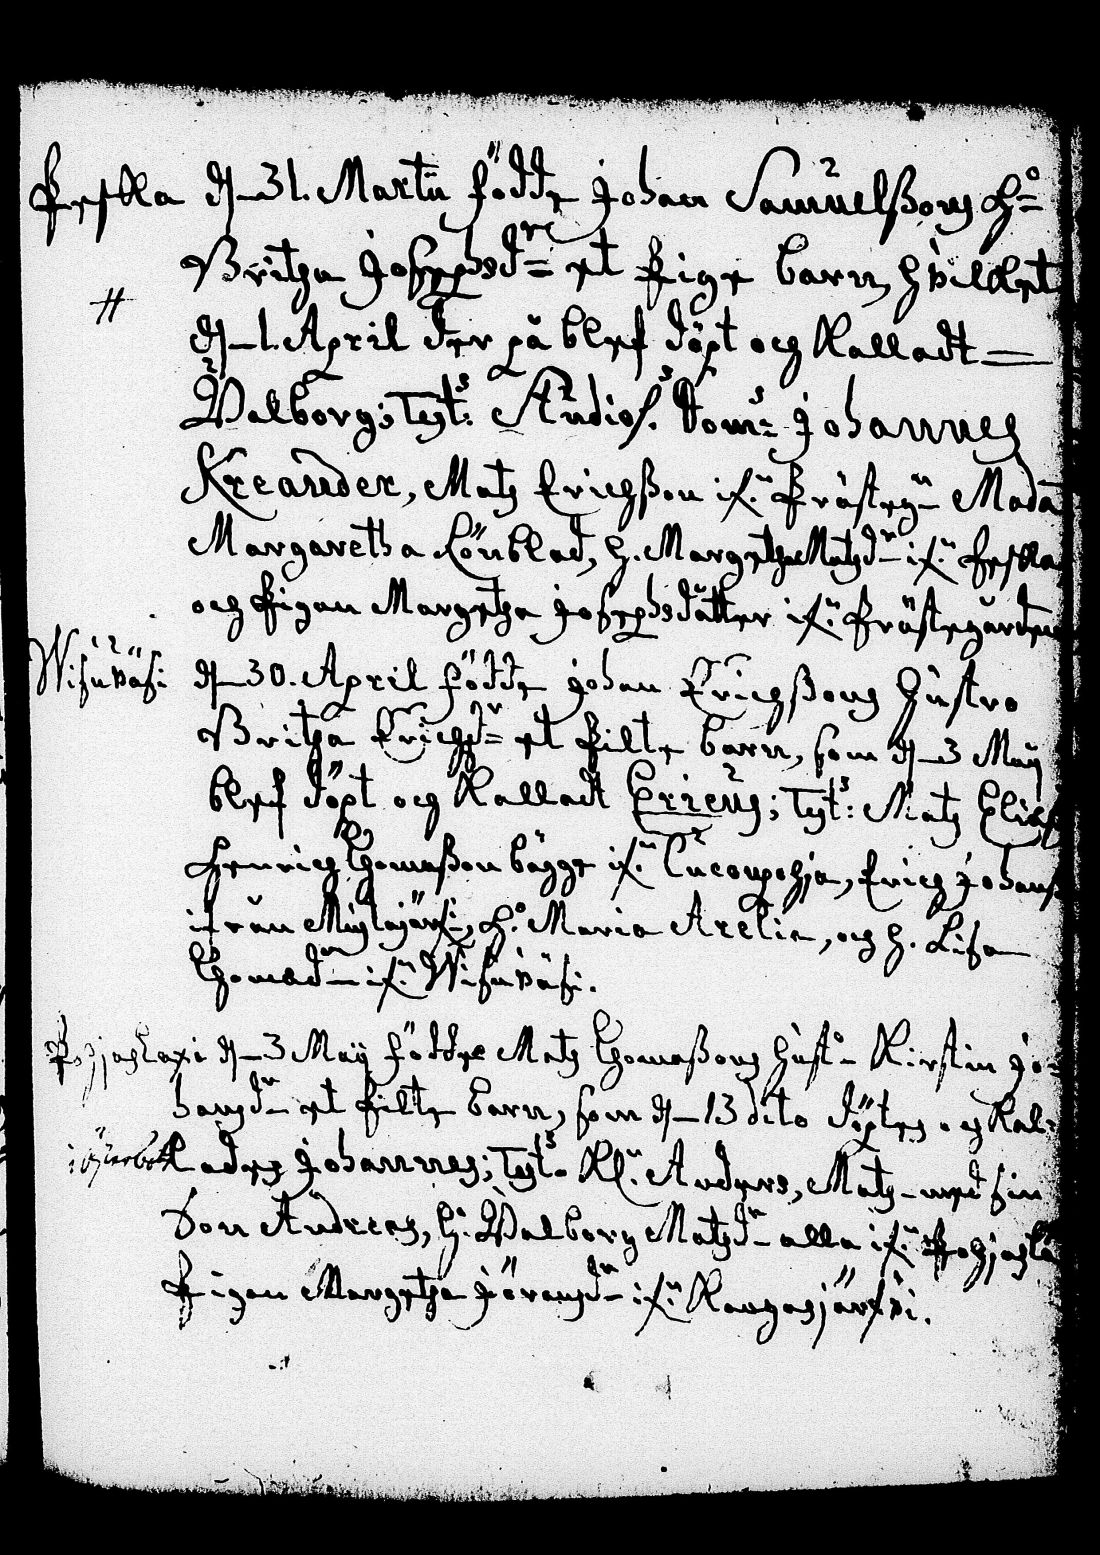 Peskla d. 31. Martii födde Johan Samuelßons H:o
Britha Josephsd:r et Pige barn, hvilket
#
d. 1. April der på blef döpt och Kalladt
Walborg; Test: Studios. Dom: Johannes
Kreander, Matz Erichßon if:n Prästeg:n Mada
Margaretha Lönblad, h. Margetha Matzd:r if:n Peskla
och Pigan Margetha Josephsdotter if:n Prästegården
Wisuväsi d. 30. April födde Johan Erichßons hustro
Britha Erichsd:r et Pilte barn, som d. 3 Maij
blef döpt och Kalladt Ericus; Test: Matz Elias
Henrich Thomaßon bägge if:n Lucoupohja, Erich Johans
ifrån Myllyjärfi, H:o Maria Arelia, och h. Lisa
Thomasd:r if:n Wisuväsi.
Pohjaslaxi d. 3 Maij födde Matz Thomaßons hust:o Kirstin Jo=
hansd:r et Pilte barn, som d. 13 dito döptes och Kal=
i Österbott lades Johannes; Test. Kl: Anders, Matz med sin
Son Andreas, h: Walborg Matzd:r alla if:n Pohjasla
Pigan Margetha Göransd:r if:n Kangasjärfvi.